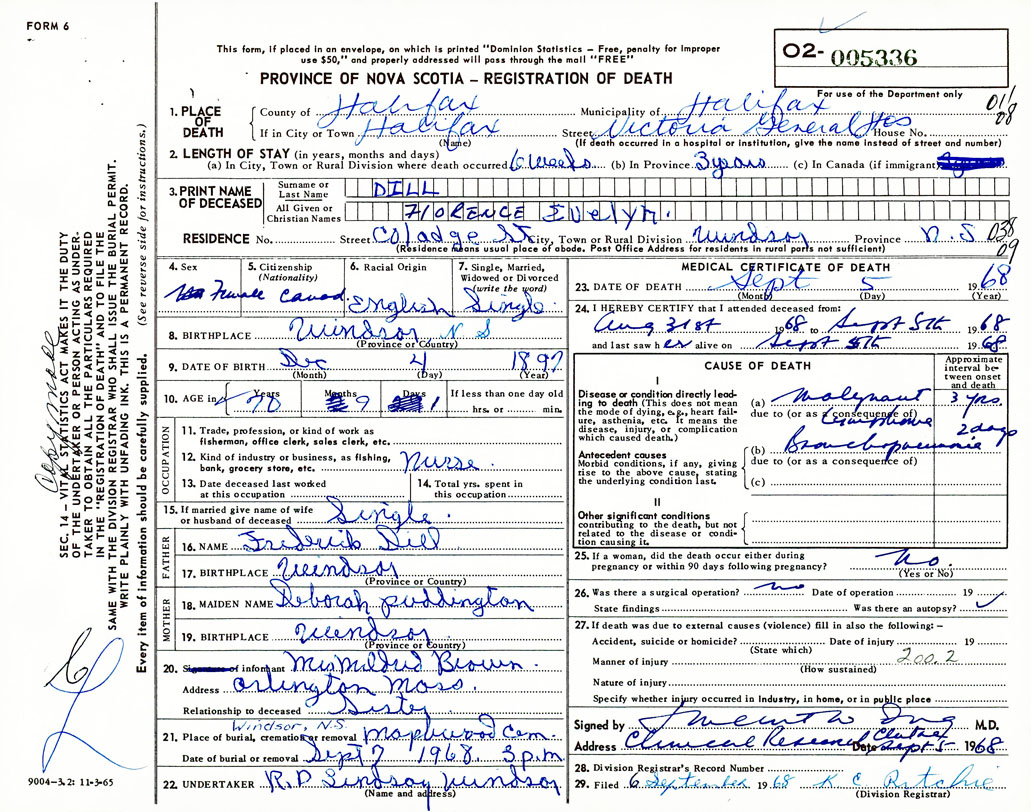 FORM 6
This form, if placed in an envelope, on which is printed "Dominion Statistics – Free, penalty for improper
use $50," and properly addressed will pass through the mail "FREE"
PROVINCE OF NOVA SCOTIA – REGISTRATION OF DEATH
O2- 005336
For use of the Department only
011
08
1. PLACE OF DEATH
County of Halifax Municipality of Halifax
If in City or Town Halifax Street Victoria General Hos House No.
(Name) (If death occurred in a hospital or institution, give the name instead of street and number)
2. LENGTH OF STAY (in years, months and days)
(a) In City, Town or Rural Division where death occurred 6 weeks (b) In Province 3 years (c) In Canada (if immigrant)
3. PRINT NAME OF DECEASED
Surname or Last Name DILL
All Given or Christian Names FLORENCE Evelyn.
RESIDENCE No. Street Coladge St City, Town or Rural Division Windsor Province N.S
038
09
(Residence means usual place of abode. Post Office Address for residents in rural parts not sufficient)
4. Sex Female
5. Citizenship (Nationality) Canad.
6. Racial Origin English
7. Single, Married, Widowed or Divorced (write the word) Single
8. BIRTHPLACE Windsor N S
(Province or Country)
9. DATE OF BIRTH Dec 4 1897
(Month) (Day) (Year)
10. AGE in Years 70 Months 9 Days 1 If less than one day old
hrs. or min.
OCCUPATION
11. Trade, profession, or kind of work as
fisherman, office clerk, sales clerk, etc.
12. Kind of industry or business, as fishing,
bank, grocery store, etc. Nurse.
13. Date deceased last worked
at this occupation
14. Total yrs. spent in
this occupation
15. If married give name of wife
or husband of deceased Single.
FATHER
16. NAME Fredrick Dill
17. BIRTHPLACE Windsor
(Province or Country)
MOTHER
18. MAIDEN NAME Deborah Puddington
19. BIRTHPLACE Windsor
(Province or Country)
20. Signature of informant Mrs Mildred Brown.
Address Arlington Mass.
Relationship to deceased Sister
Windsor, N.S.
21. Place of burial, cremation or removal Maplewood Cem.
Date of burial or removal Sept 7 1968 3 p.m
22. UNDERTAKER R.D Lindsay Windsor
(Name and address)
MEDICAL CERTIFICATE OF DEATH
23. DATE OF DEATH Sept 5 1968
(Month) (Day) (Year)
24. I HEREBY CERTIFY that I attended deceased from:
Aug 31st 1968 to Sept 5th 1968
and last saw her alive on Sept 5th 1968
CAUSE OF DEATH
Approximate interval between onset and death
I
Disease or condition directly leading to death (This does not
mean the mode of dying, e.g., heart failure, asthenia, etc. It means the
disease, injury, or complication
which caused death.)
(a) Malignant 3 yrs.
due to (or as a consequence of)
Lymphoma
2 days
(b) Bronchopneumonia
due to (or as a consequence of)
Antecedent causes
Morbid conditions, if any, giving
rise to the above cause, stating
the underlying condition last.
(c)
II
Other significant conditions
contributing to the death, but not
related to the disease or condition causing it.
25. If a woman, did the death occur either during
pregnancy or within 90 days following pregnancy? No.
(Yes or No)
26. Was there a surgical operation? no Date of operation 19
State findings Was there an autopsy? ✓
27. If death was due to external causes (violence) fill in also the following: –
Accident, suicide or homicide? Date of injury 19
(State which)
Manner of injury 200.2
(How sustained)
Nature of injury
Specify whether injury occurred in Industry, in home, or in public place
Signed by M.D.
Address Clinical Research Date Sept 5 1968
28. Division Registrar's Record Number
29. Filed 6 September 1968 K C Ritchie
(Division Registrar)
SEC. 14 – VITAL STATISTICS ACT MAKES IT THE DUTY
OF THE UNDERTAKER OR PERSON ACTING AS UNDER-
TAKER TO OBTAIN ALL THE PARTICULARS REQUIRED
IN THE "REGISTRATION OF DEATH" AND TO FILE THE
SAME WITH THE DIVISION REGISTRAR WHO SHALL ISSUE THE BURIAL PERMIT.
WRITE PLAINLY WITH UNFADING INK. THIS IS A PERMANENT RECORD.
Every item of information should be carefully supplied. (See reverse side for instructions.)
9004-3.2: 11-3-65